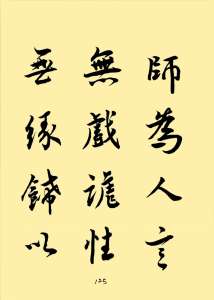 師為人言
無戲謔性
無緣飾以
125